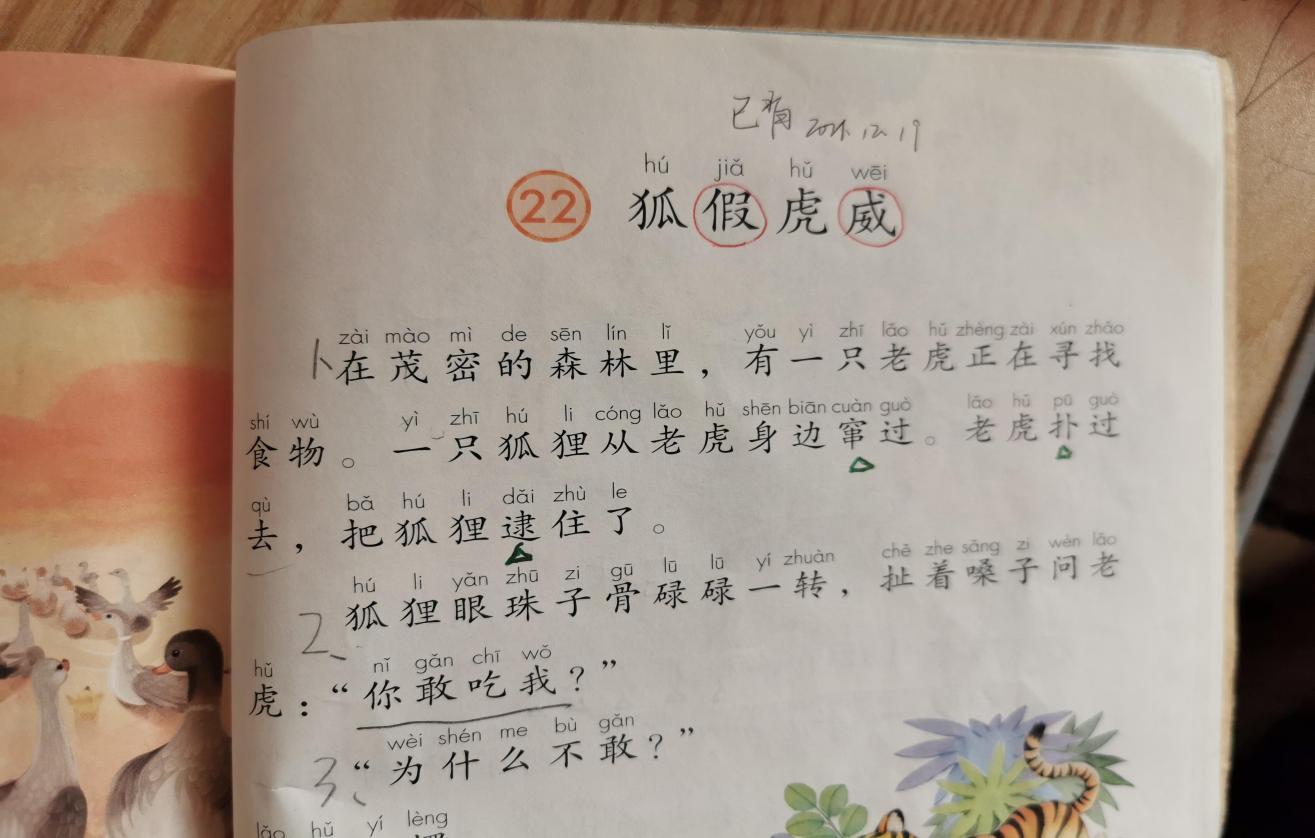 已背 2021.12.19
hú jiǎ hǔ wēi
22 狐假虎威
zài mào mì de sēn lín lǐ yǒu yì zhī lǎo hǔ zhèng zài xún zhǎo
1 在茂密的森林里，有一只老虎正在寻找
shí wù yì zhī hú li cóng lǎo hǔ shēn biān cuàn guò lǎo hǔ pū guò
食物。一只狐狸从老虎身边窜过。老虎扑过
qù bǎ hú li dǎi zhù le
去，把狐狸逮住了。
hú li yǎn zhū zi gū lū lū yí zhuàn chě zhe sǎng zi wèn lǎo
2、狐狸眼珠子骨碌碌一转，扯着嗓子问老
hǔ nǐ gǎn chī wǒ
虎：“你敢吃我？”
wèi shén me bù gǎn
3、“为什么不敢？”
lǎo hǔ yí lèng